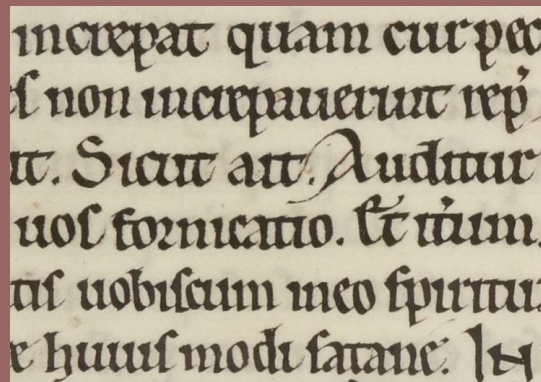 increpat quam cur pec
es non increpauerunt rep̄
it. Sicut ait. Auditur
uos fornicatio. Et it̄um.
tis uobiscum meo spiritu
e huius modi satane. IN